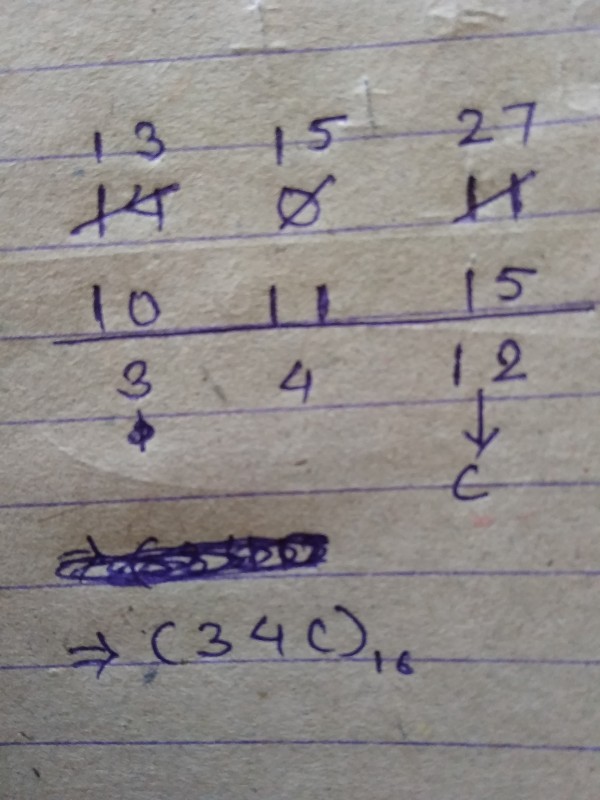 13 15 27
14 0 11
10 11 15
3 4 12
↓
C
⇒ (34C)16